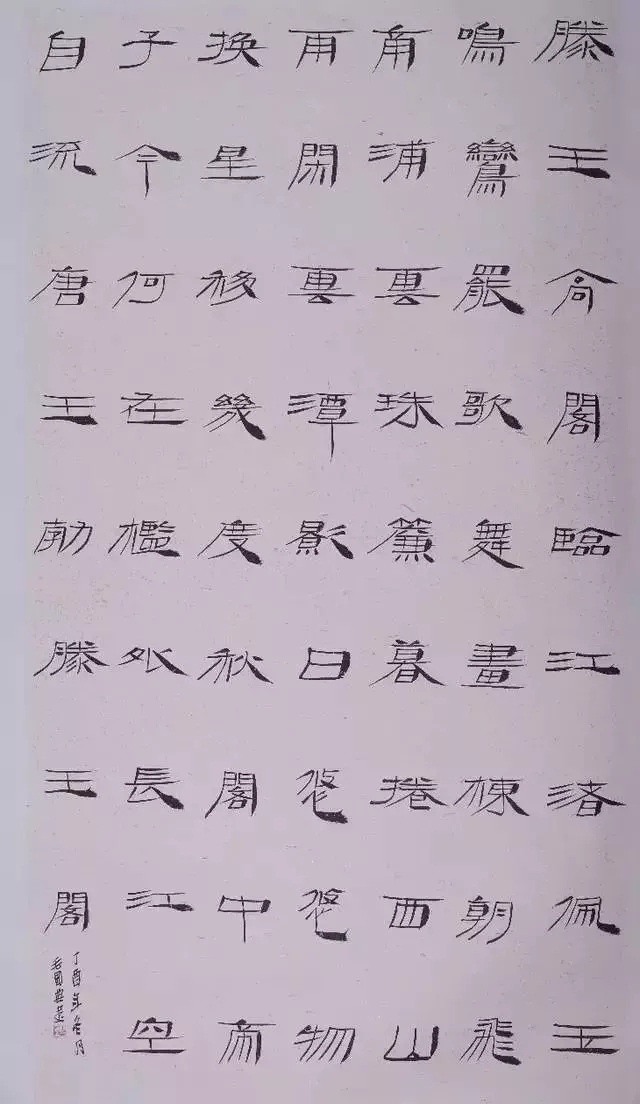 滕王高閣臨江渚佩玉
鳴鸞罷歌舞畫棟朝飛
南浦雲珠簾暮捲西山
雨閑雲潭影日悠悠物
換星移幾度秋閣中帝
子今何在檻外長江空
自流唐王勃滕王閣
丁酉年冬月